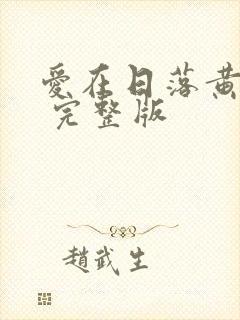 愛在日落黃
完整版
趙武生